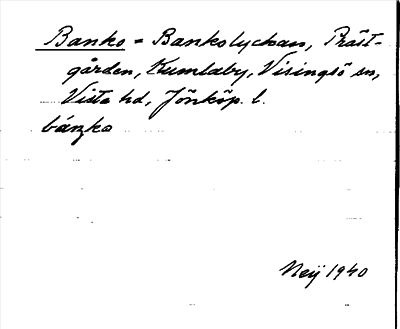 Banko = Bankolyckan, Präst-
gården, Kumlaby, Visingsö sn,
Vista hd, Jönköp. l.
báŋko
Neij 1940